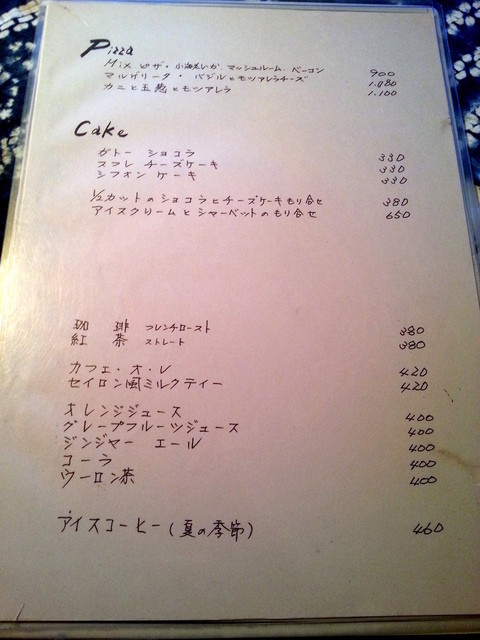 Pizza
Mix ピザ・小海老、いか、マッシュルーム、ベーコン 900
マルゲリータ・バジルとモツアレラチーズ 1.080
カニと玉葱とモツアレラ 1.100
Cake
ガトー ショコラ 330
スフレ チーズケーキ 330
シフオン ケーキ 330
1/2カットのショコラとチーズケーキもり合せ 380
アイスクリームとシャーベットのもり合せ 650
珈琲 フレンチロースト 380
紅茶 ストレート 380
カフェ・オ・レ 420
セイロン風ミルクティー 420
オレンジジュース 400
グレープフルーツジュース 400
ジンジャー エール 400
コーラ 400
ウーロン茶 400
アイスコーヒー(夏の季節) 460